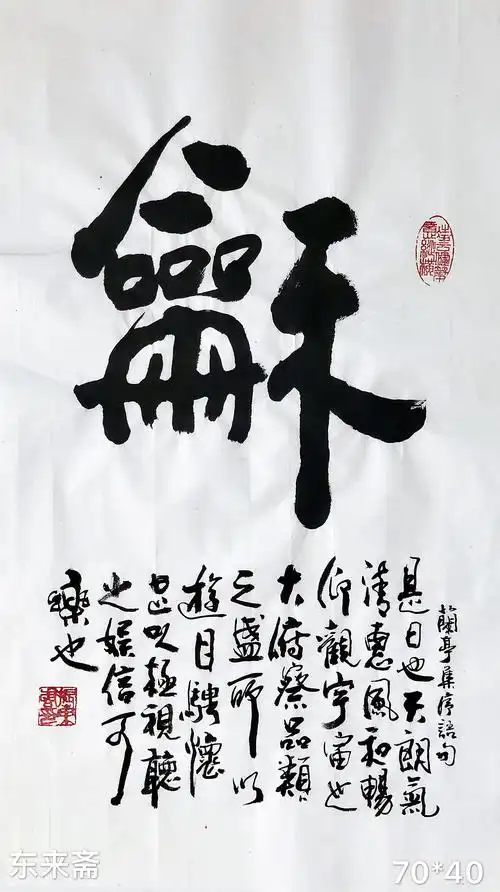 龢
蘭亭集序語句
是日也天朗氣
清惠風和暢
仰觀宇宙之
大俯察品類
之盛所以
遊目騁懷
足以極視聽
之娱信可
樂也
东来斋
70*40